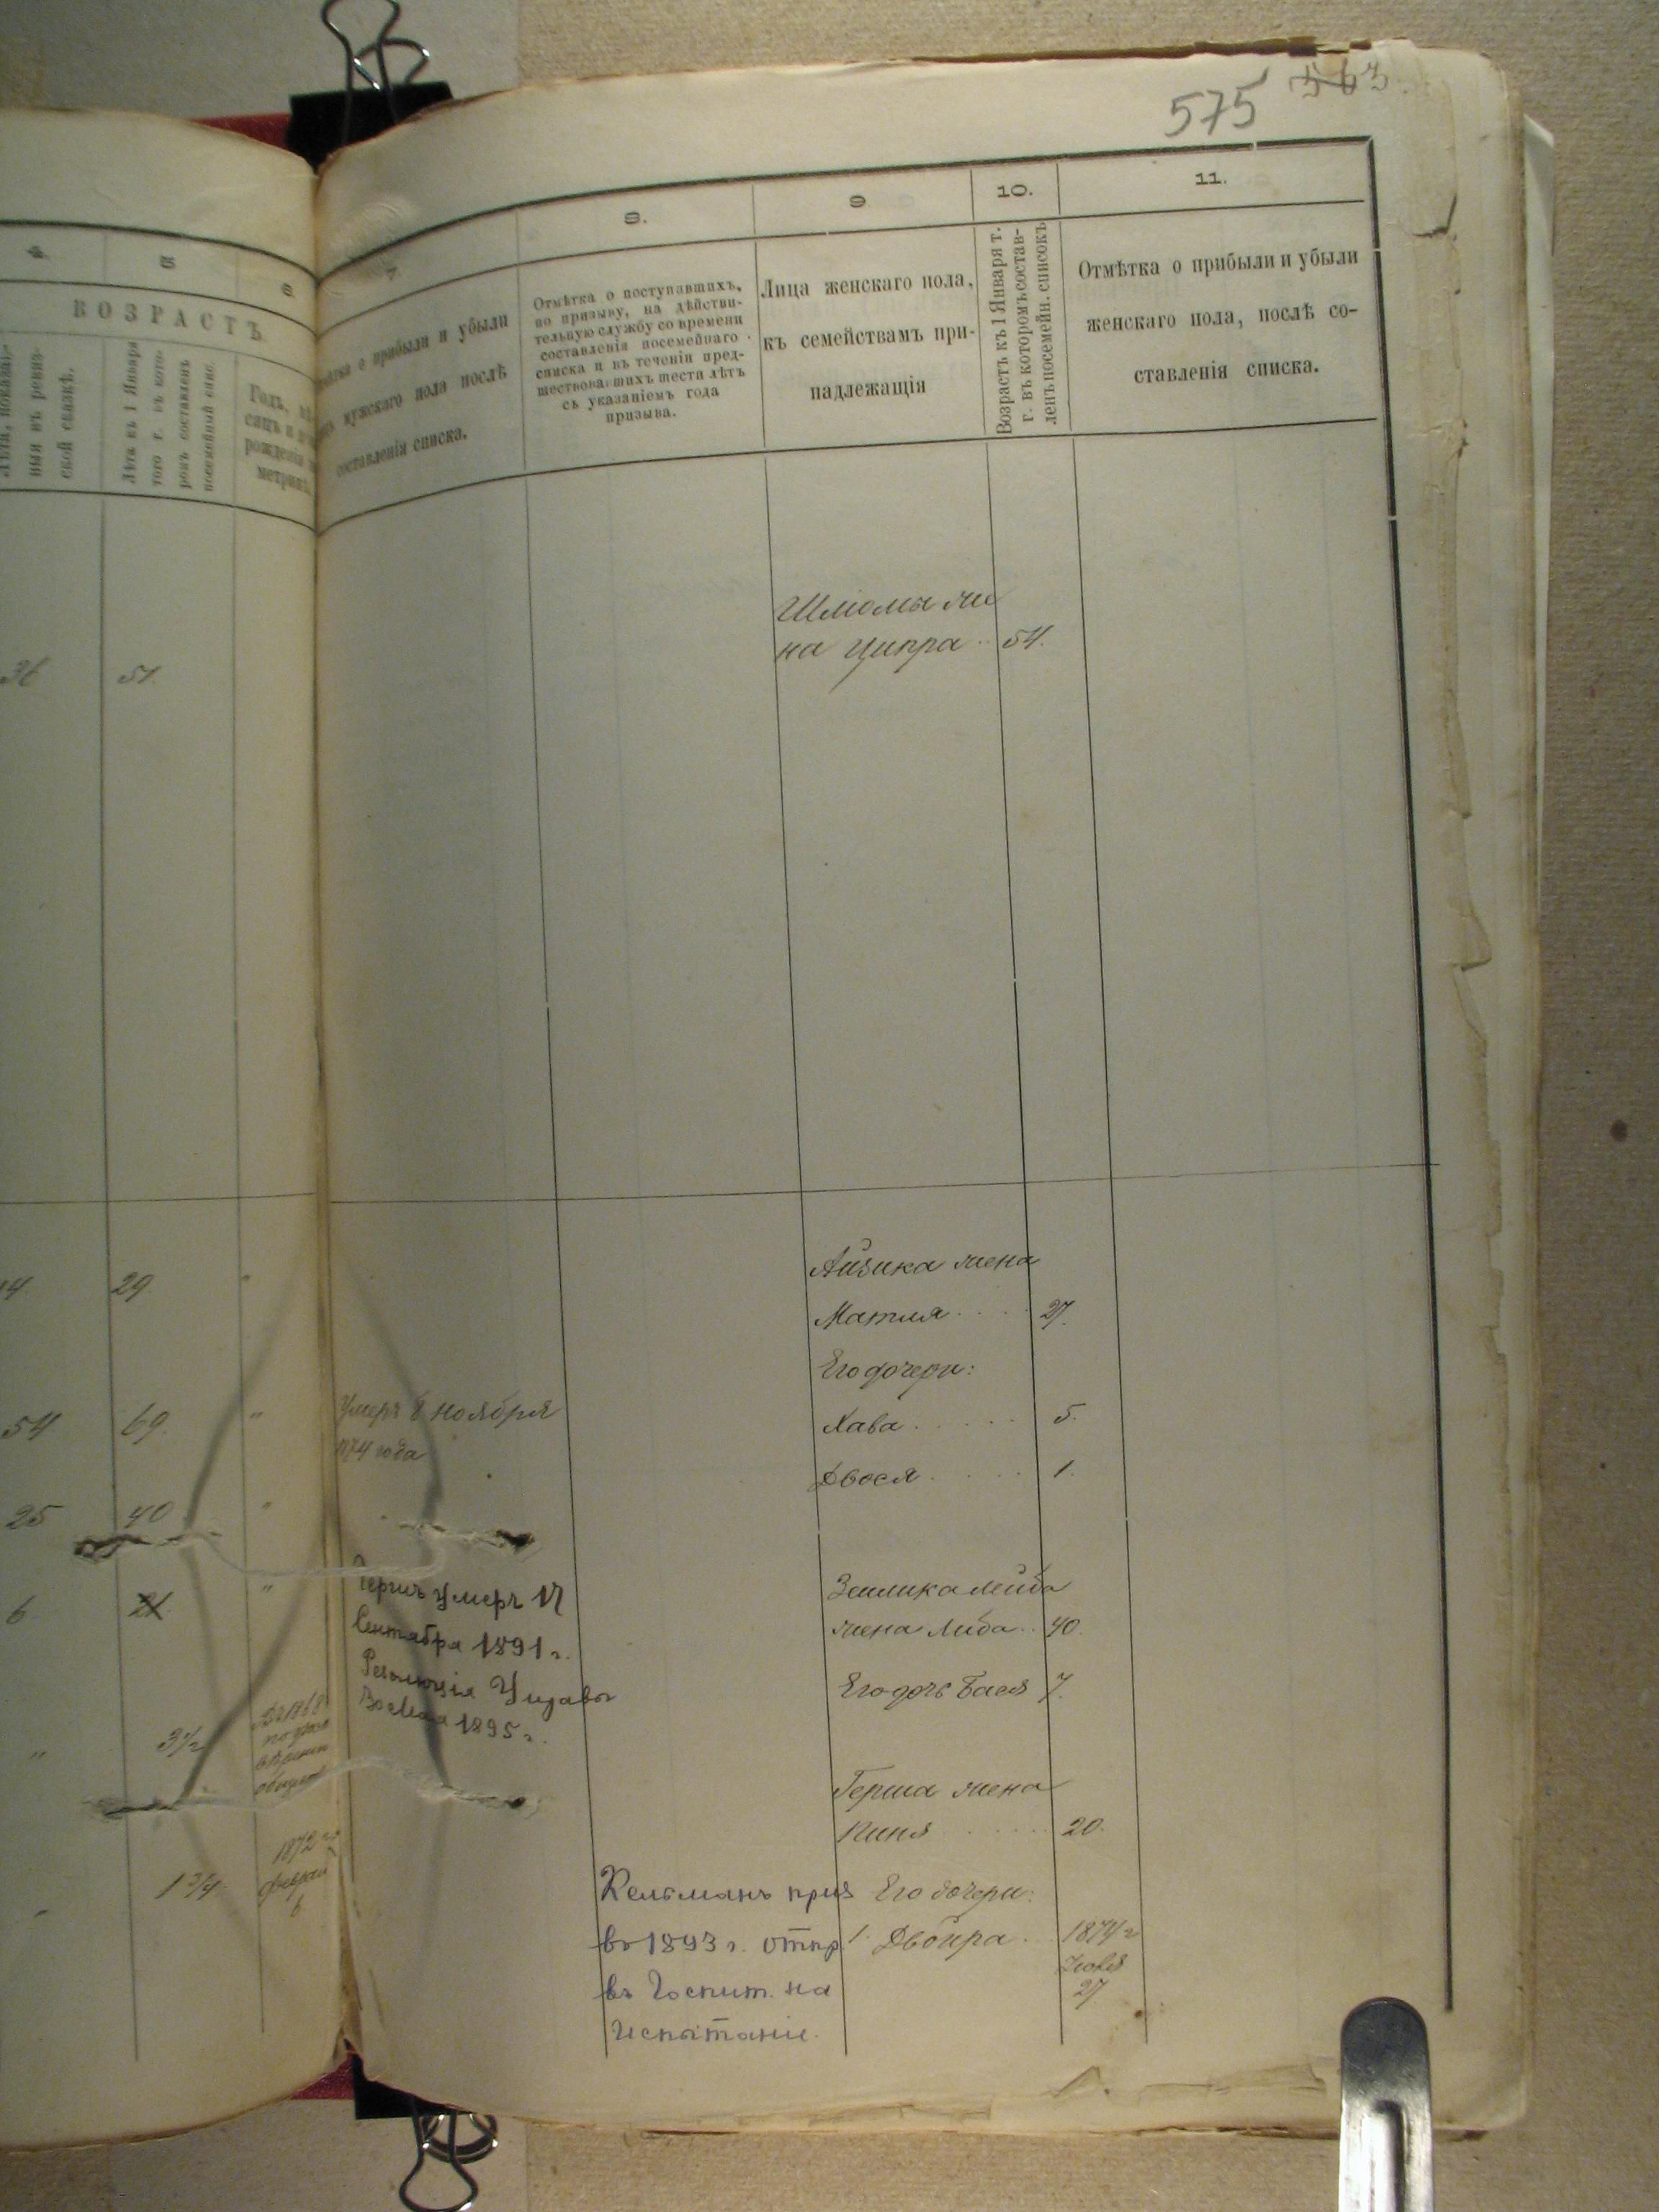 575 563
4
5
6
ВОЗРАСТЪ
ныя въ ревиз-
ской сказкѣ.
Лѣта къ 1 Января
того г. въ кото-
ромъ составленъ
посемейный спис.
Годъ, мѣ-
сяцъ и
рожденія
метрик
7.
о прибыли и убыли
мужского пола послѣ
составленія списка.
8.
Отмѣтка о поступавшихъ,
по призыву, на дѣйстви-
тельную службу со времени
составленія посемейнаго
списка и въ теченіи пред-
шествовавшихъ шести лѣтъ
съ указаніемъ года
призыва.
9
Лица женскаго пола,
къ семействамъ при-
надлежащія
10.
Возрастъ къ 1 Января т.
г. въ которомъ состав-
ленъ посемейн. списокъ
11.
Отмѣтка о прибыли и убыли
женскаго пола, послѣ со-
ставленія списка.
Шліомы же
на Ципра 54.
36 51.
29
Айзика жена
Матля 27.
Его дочери:
54 69. " Умеръ 8 ноября
874 года
Хава 5.
Двося 1.
25 40 "
6 21 "
Гершъ умеръ 17
Сентября 1891 г.
Резолюція У
1895 г.
Зелика Лейба
жена Либа 40.
Его дочь Бася 7.
" 3½
1868
Герша жена
20.
1¾ 1872 г.
феврал
6
Кельманъ приз
въ 1893 г. отпр
въ Госпит. на
Испытаніе.
Его дочери:
1. Двойра 1874 г
27